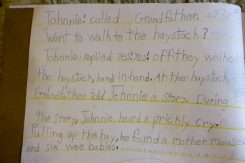 Johnnie! called Grandfather.
Want to walk to the haystack?
Johnnie replied yes! yes! off they walked
the haystack, hand-in-hand. At the haystack
Grandfather told Johnnie a story. During
the story, Johnnie heard a prickly cry.
Pulling up the hay, he found a mother mouse
and six wee babies.